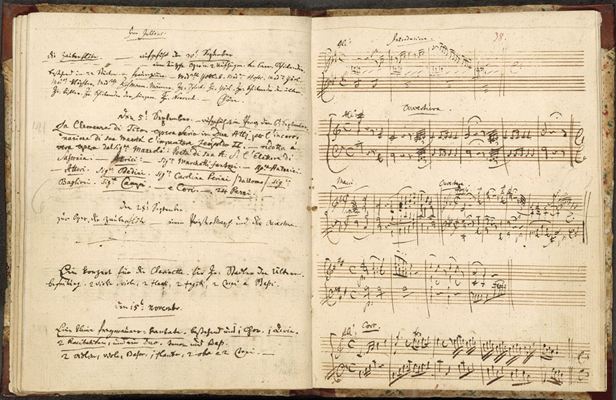 Im Jullius.
die Zauberflöte. — aufgeführt den 30:t September.
eine teutsche Oper in 2 Aufzügen. von Eman. Schikaneder.
bestehend in 22 Stücken. — Frauenzimmer. — Mad:selle Gottlieb. Mad:me Hofer. Mad:me Görl.
Hr: Schikaneder der Jüngere. Hr: Nouseul. — Chöre.
Den 5:t September. — aufgeführt in Prag den 6:t September.
La Clemenza di Tito. opera Seria in Due Atti. per l'incoro-
nazione di sua Maestà l'imperatore Leopoldo II. — ridotta à
vera opera dal Sig:re Mazzolà. Poeta di sua A: S: l'Elettore di
Sassonia. — Attrici: — Sig:ra Marchetti fantozi. — Sig:ra Antonini.
— Attori. Sig:re Bedini. Sig:ra Carolina Perini / da Uomo / Sig:re
Baglioni. Sig:re Campi. — e Cori. — 24 Pezzi.
Den 28:t September.
zur Oper. die Zauberflöte — einen Priestermarsch und die Ouverture.
Ein Konzert für die Clarinette. für Hr: Stadler den Ältern.
begleitung. 2 viol. viole, 2 flauti, 2 fagotti, 2 Corni e Bassi.
Den 15:t Novembr.
Eine kleine freymaurer-kantate. bestehend aus 1 Chor. 1 Arie.
2 Recitativen, und ein Duo. tenor und Bass.
2 violini, viola, Basso, 1 flauto, 2 oboe e 2 Corni. —
38.
All:o Introduzione.
Ouvertura.
Marcia Ouverture
All:o Coro.